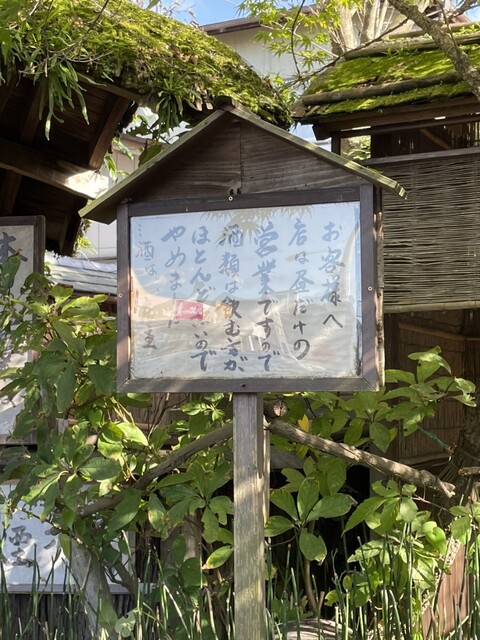 お客様へ
店は昼だけの
営業ですので
酒類は飲む方が
ほとんどいので
やめました
酒は